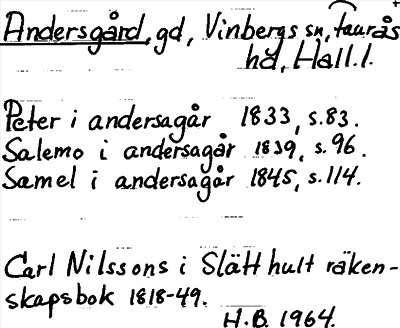 Andersgård, gd, Vinbergs sn, Faurås
hd, Hall. l.
Peter i andersagår 1833, s. 83.
Salemo i andersagår 1839, s. 96.
Samel i andersagår 1845, s. 114.
Carl Nilssons i Slätthult räken-
skapsbok 1818-49.
H.B. 1964.